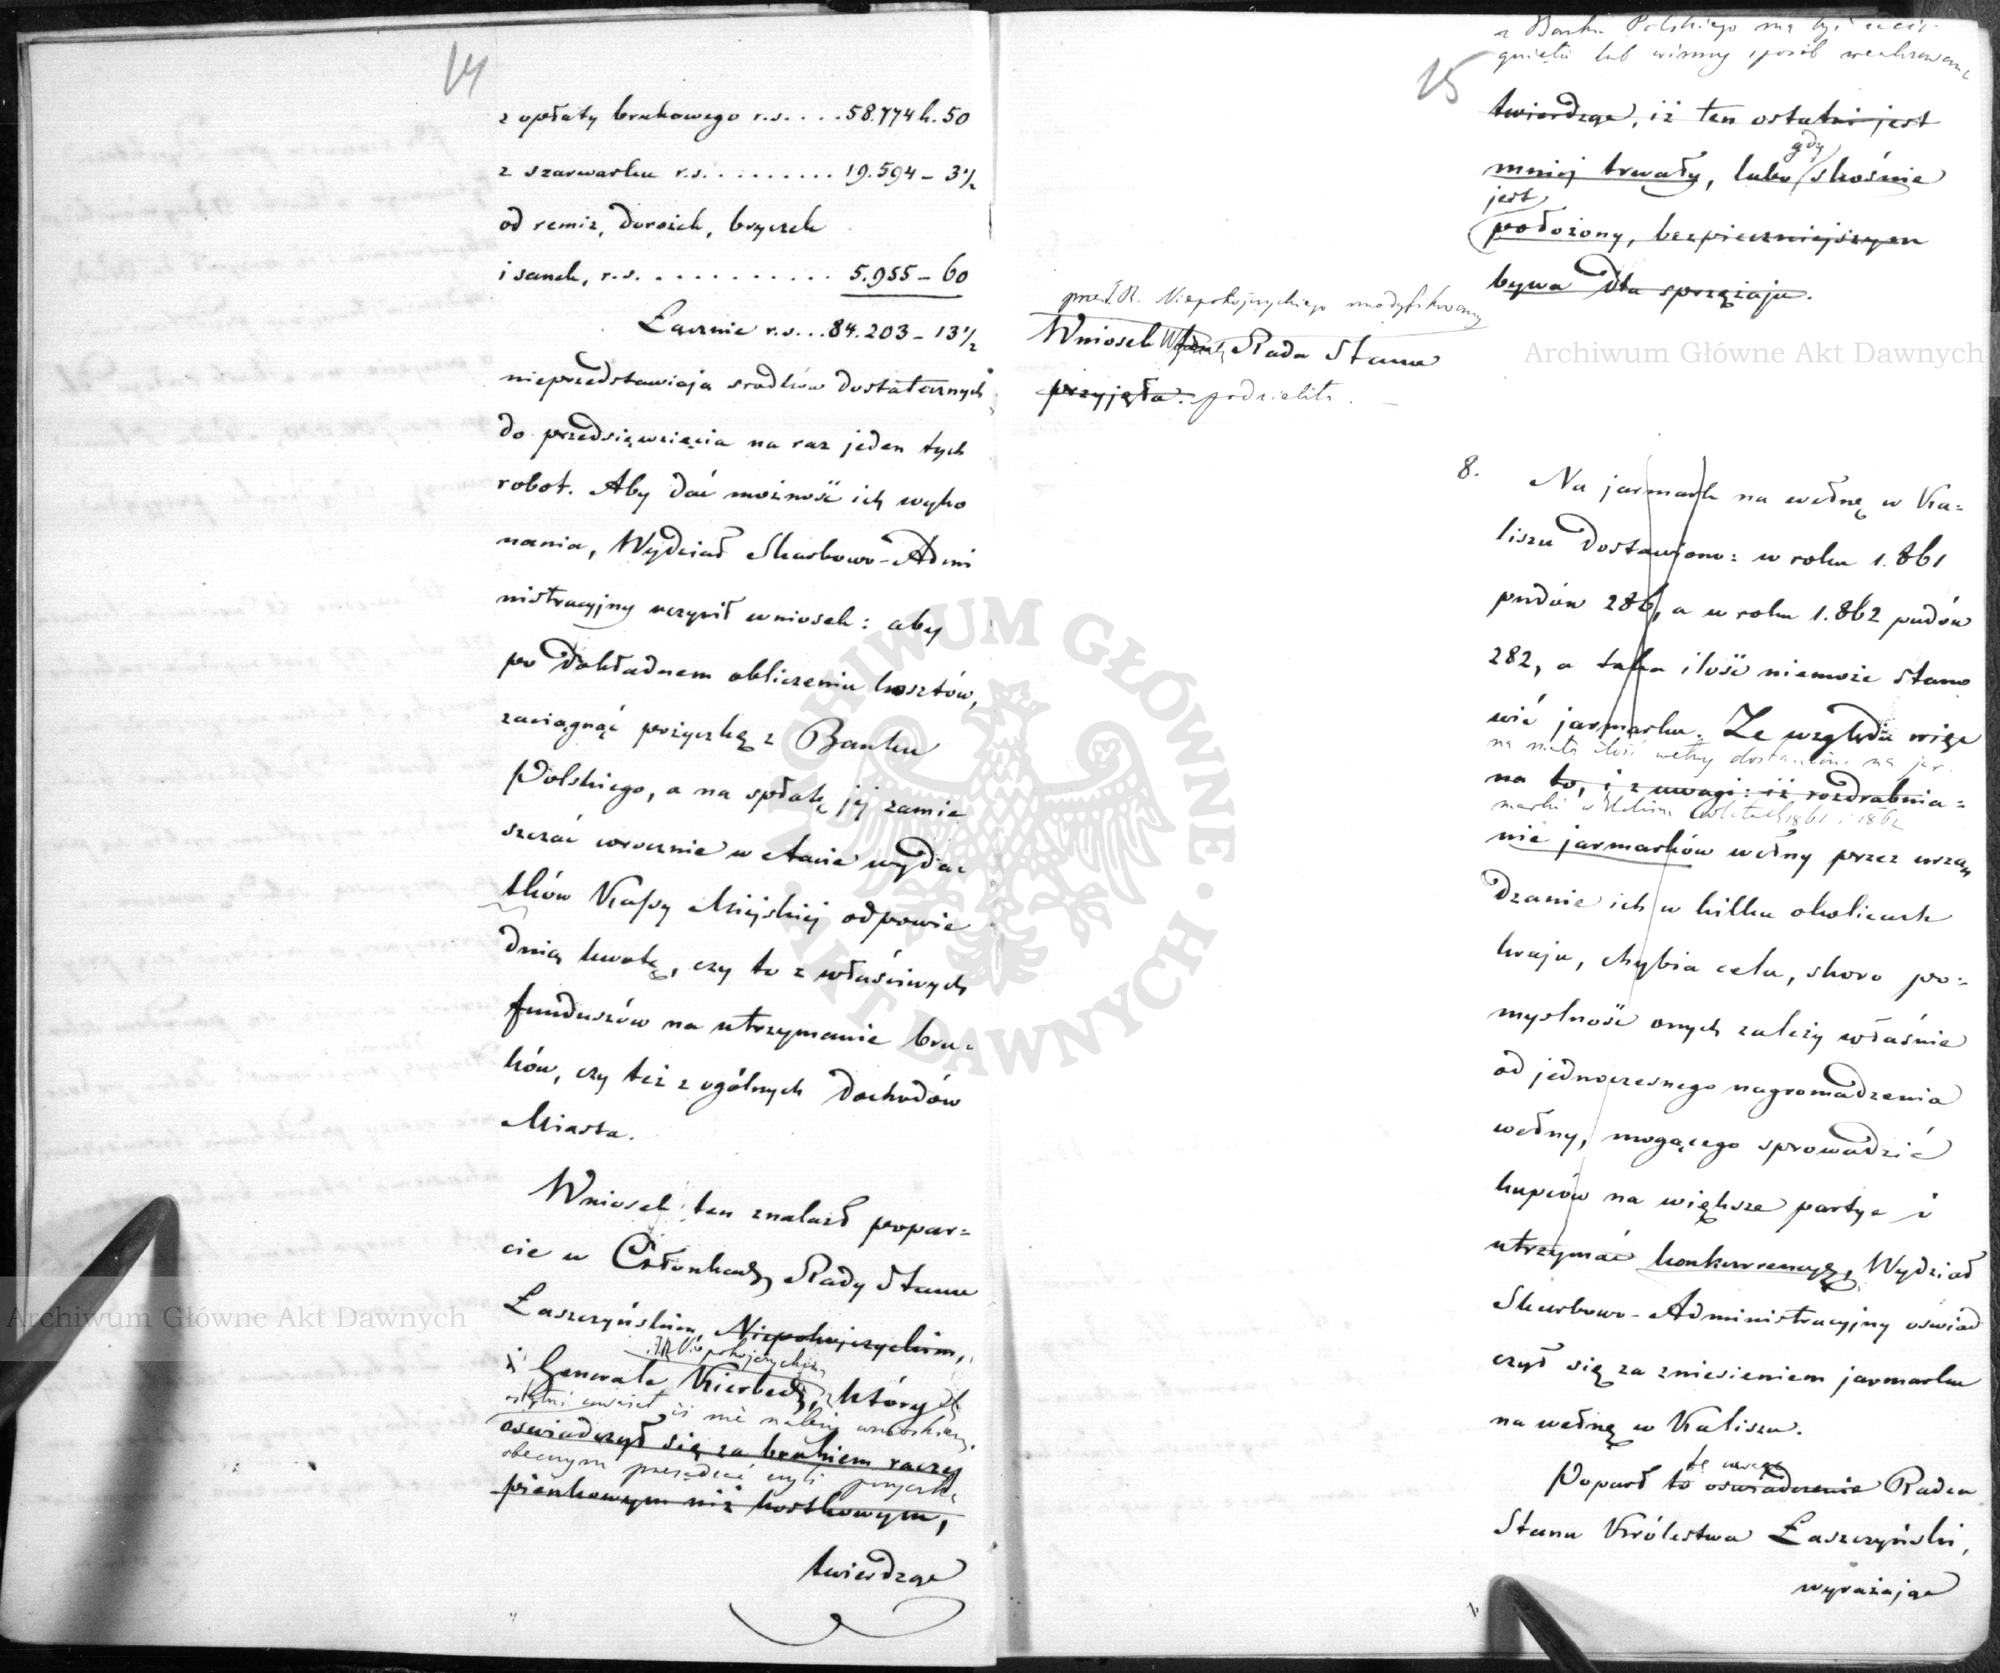 14
z opłaty brukowego r.s. . . . 58.774 k. 50
z szarwarku r.s. . . . . . . . . 19.594 – 3½
od remiz, dorożek, bryczek
i sanek, r.s. . . . . . . . . . . 5.955 – 60
Łącznie r.s. . . 84.203 – 13½
nieprzedstawiają srodków dostatecznych
do przedsięwzięcia na raz jeden tych
robot. Aby dać możność ich wyko
nania, Wydział Skarbowo-Admi
nistracyjny uczynił wniosek: aby
po dokładnem obliczeniu kosztów,
zaciągnąć pożyczkę z Banku
Polskiego, a na spłatę jej zamie
szczać corocznie w etacie wydat
ków Kassy Miejskiej odpowie
dnią kwotę, czy to z właściwych
funduszów na utrzymanie bru=
ków, czy też z ogólnych dochodów
Miasta.
Wniosek ten znalazł popar=
cie w Członkach Rady Stanu
Łaszczyńskim, Niepokojczyckim,
i J.R. Niepokojczyckim
i Generale Kierbedź, który
ostatni uważał iż nie należy wnioskiem
oświadczył się za brukiem raczej
obecnym przesądzać czyli pożyczka
pieńkowym niż kostkowym,
twierdząc
15
z Banku Polskiego ma być zacią-
gnięta lub w inny sposób
twierdząc, iż ten ostatni jest
gdy
mniej trwały, lubo skośnie
jest
położony, bezpieczniejszym
bywa dla sprzężaju.
przez J.R. Niepokojczyckiego modyfikowany
Wniosek Wydziału Rada Stanu
przyjęła. podzieliła.
8. Na jarmark na wełnę w Ka=
liszu dostawiono: w roku 1.861
pudów 286, a w roku 1.862 pudów
282, a taka ilość niemoże stano
wić jarmarku. Ze względu więc
na małą ilość wełny dostawionej na jar-
na to, i z uwagi: iż rozdrabnia=
marki w Kaliszu w latach 1861 i 1862
nie jarmarków wełny przez urzą
dzanie ich w kilku okolicach
kraju, chybia celu, skoro po=
myslność onych zależy właśnie
od jednoczesnego nagromadzenia
wełny, mogącego sprowadzić
kupców na większe partye i
utrzymać konkurrencyę, Wydział
Skarbowo-Administracyjny oświad
czył się za zniesieniem jarmarku
na wełnę w Kaliszu.
tę uwagę
Poparł to oświadczenie Radca
Stanu Królestwa Łaszczyński,
wyrażając
Archiwum Główne Akt Dawnych
Archiwum Główne Akt Dawnych
ARCHIWUM GŁÓWNE · AKT DAWNYCH ·